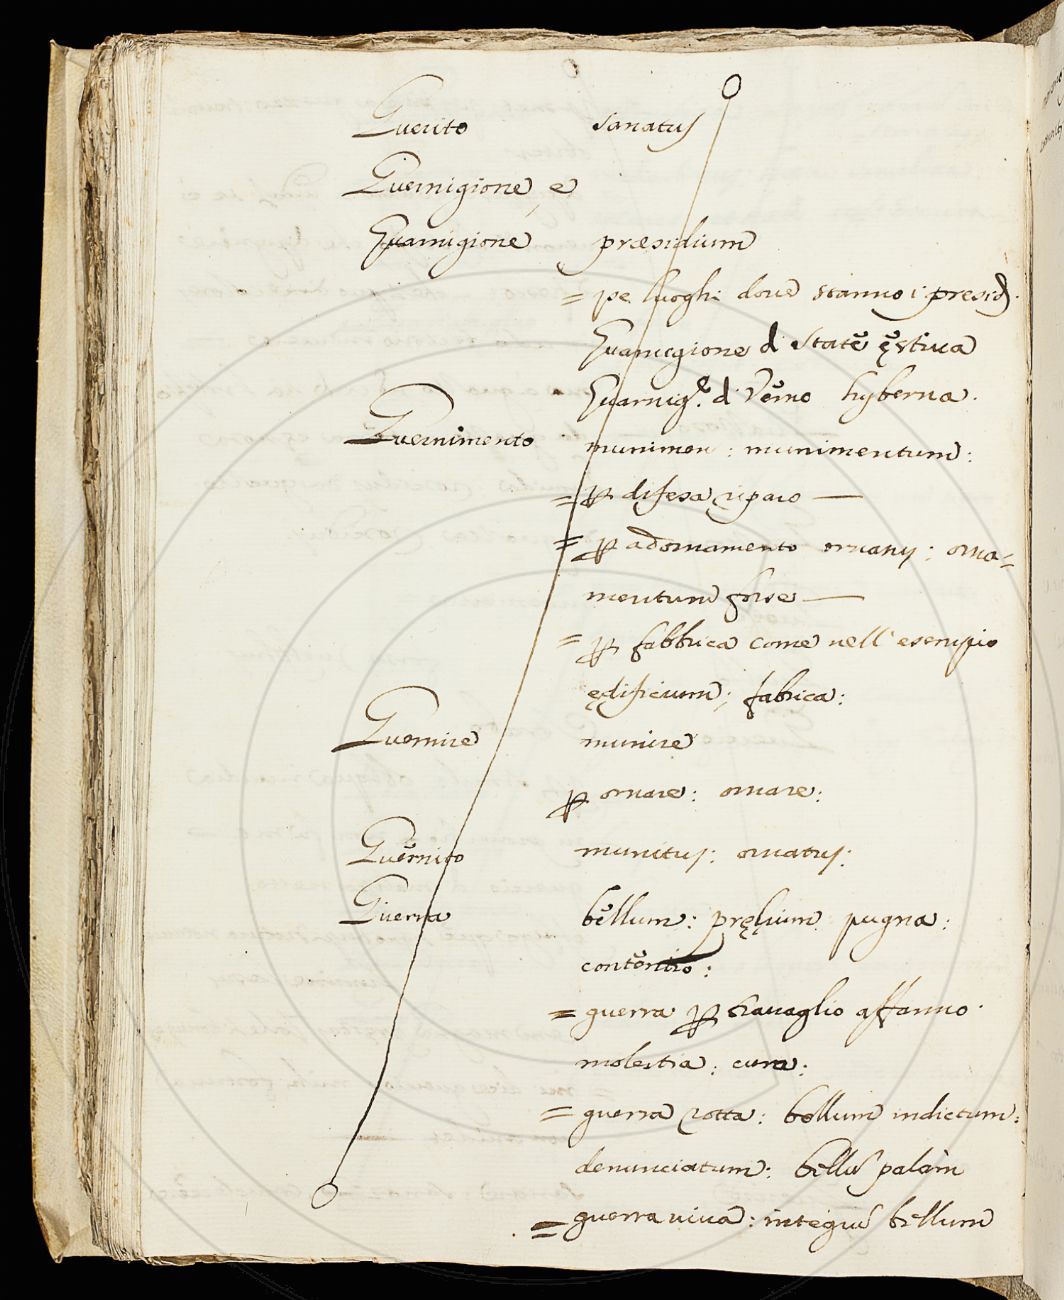 Guerito sanatus
Guernigione, e
Guarnigione præsidium
= pe luoghi doue stanno i presid.
Guarnigione d' State ęstiua
Guarnig.e d' Verno hyberna.
Guernimento munimen: munimentum:
= p difesa, riparo —
= p adornamento ornatus: orna-
mentum forse —
= p fabbrica come nell' esempio
ędificium; fabrica:
Guernire munire
p ornare: ornare:
Guernito munitus: ornatus:
Guerra bellum: pręlium: pugna:
contentio:
= guerra p trauaglio affanno.
molestia: cura:
= guerra rotta: bellum indictum:
denunciatum: bellū palàm
= guerra uiua: integrū bellum